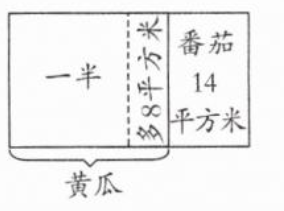 一半
多8平方米
番茄
14
平方米
黄瓜